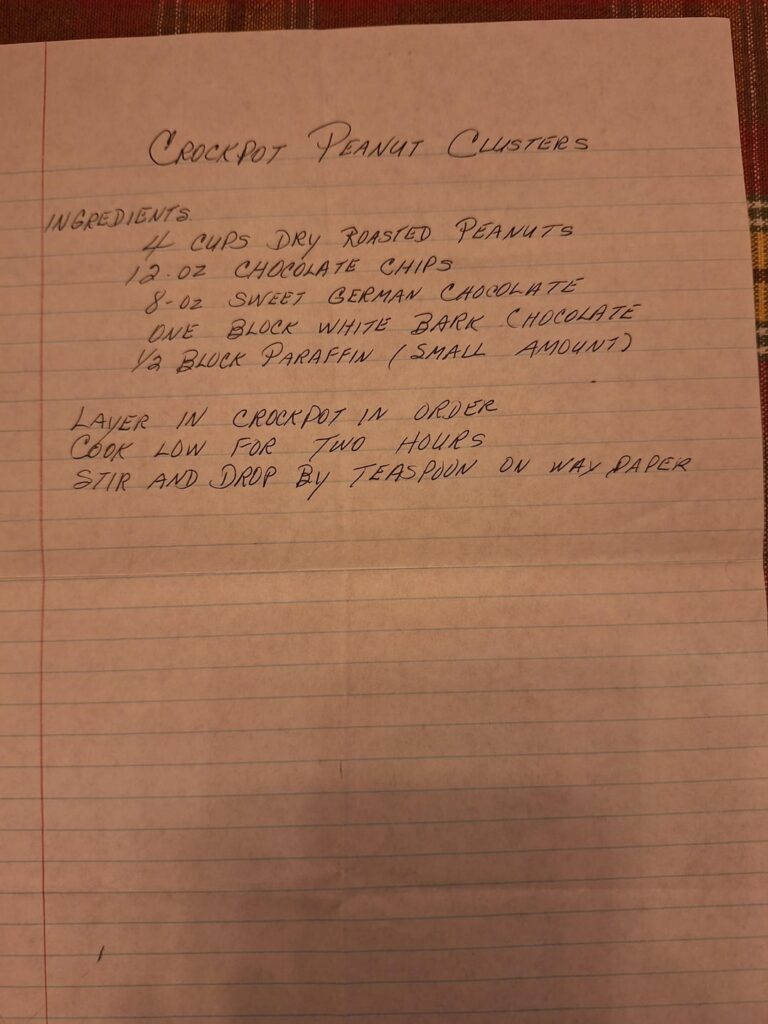 CROCKPOT PEANUT CLUSTERS
INGREDIENTS
4 CUPS DRY ROASTED PEANUTS
12-OZ CHOCOLATE CHIPS
8-OZ SWEET GERMAN CHOCOLATE
ONE BLOCK WHITE BARK CHOCOLATE
1/2 BLOCK PARAFFIN (SMALL AMOUNT)
LAYER IN CROCKPOT IN ORDER
COOK LOW FOR TWO HOURS
STIR AND DROP BY TEASPOON ON WAX PAPER